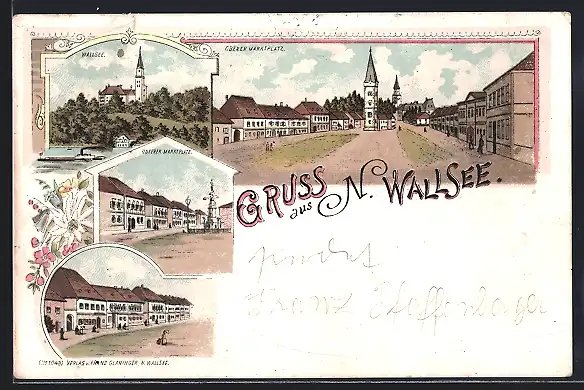 WALLSEE.
OBERER MARKTPLATZ.
OBERER MARKTPLATZ.
GRUSS aus N. WALLSEE.
sendet
Franz
VERLAG v. FRANZ GLANINGER, N. WALLSEE.